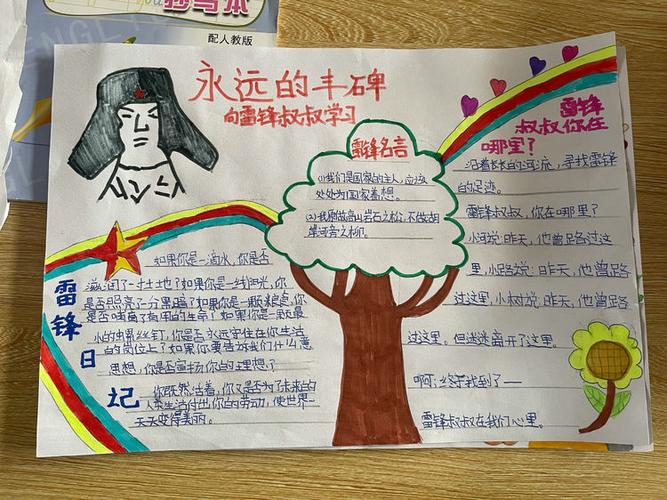 抄写本
配人教版
永远的丰碑
向雷锋叔叔学习
雷锋名言
(1)我们是国家的主人,应该
处处为国家着想。
(2)我愿做高山岩石之松,不做湖
岸河旁之柳。
雷锋
叔叔你在
哪里?
沿着长长的河流,寻找雷锋
的足迹。
雷锋叔叔,你在哪里
小河说:昨天,他曾路过这
里,小路说:昨天,他曾路
过这里,小树说:昨天,他曾路
过这里。但迷迷离开了这里。
啊,终于找到了一
雷锋叔叔在我们心里。
雷锋日记
如果你是一滴水,你是否
滋润了一寸土地?如果你是一线阳光,你
是否照亮了一分黑暗?如果你是一颗粮食,你
是否哺育了有用的生命?如果你是一颗最
小的螺丝钉,你是否永远守住在你生活
的岗位上?如果你要告诉我们什么
思想,你是否宣扬你的理想?
你既然活着,你又是否为了未来的
人类生活付出你的劳动,使世界一
天天变得美丽。